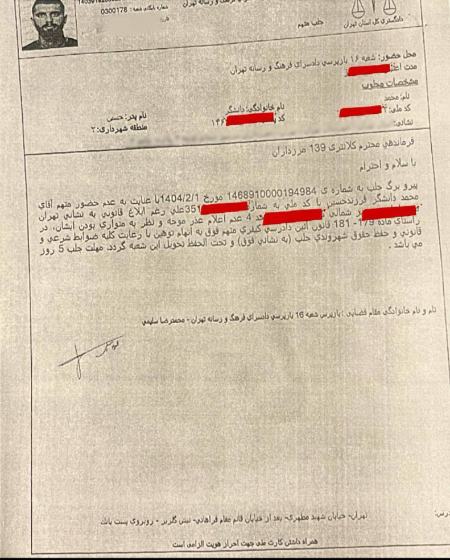 0300178 : شماره بایگانی شعبه
دادگستری کل استان تهران
جلب متهم
محل حضور: شعبه ۱۶ بازپرسی دادسرای فرهنگ و رسانه تهران
مدت اعتبار
مشخصات مجلوب
نام: محمد نام خانوادگی: دانشگر نام پدر: حسین
کد ملی: کد منطقه شهرداری: ۲
نشانی:
فرماندهی محترم کلانتری 139 مرزداران
با سلام و احترام
پیرو برگ جلب به شماره ی 1468910000194984 مورخ 1404/2/1 با عنایت به عدم حضور متهم آقای
محمد دانشگر فرزندحسین با کد ملی به شماره 351 علی رغم ابلاغ قانونی به نشانی تهران
شمالی 4 عدم اعلام عذر موجه و نظر به متواری بودن ایشان، در
راستای ماده 179- 181 قانون آئین دادرسی کیفری متهم فوق به اتهام توهین با رعایت کلیه ضوابط شرعی و
قانونی و حفظ حقوق شهروندی جلب (به نشانی فوق) و تحت الحفظ تحویل این شعبه گردد. مهلت جلب 5 روز
می باشد .
نام و نام خانوادگی مقام قضایی : بازپرس شعبه 16 بازپرسی دادسرای فرهنگ و رسانه تهران - محمدرضا سلیمی
تهران- خیابان شهید مطهری- بعد از خیابان قائم مقام فراهانی- نبش گلریز - روبروی پست بانک
همراه داشتن کارت ملی جهت احراز هویت الزامی است